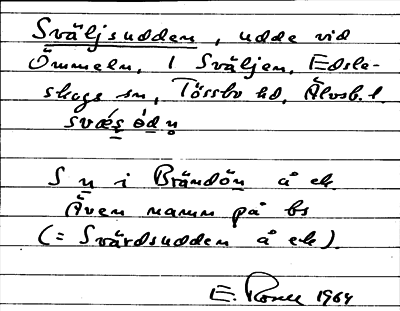 Sväljsudden, udde vid
Ömmeln, i Sväljen, Edsle-
skogs sn, Tössbo hd, Älvsb. l.
S n i Brändön å ek.
Även namn på bs
(= Svärdsudden å ek).
E. 1964